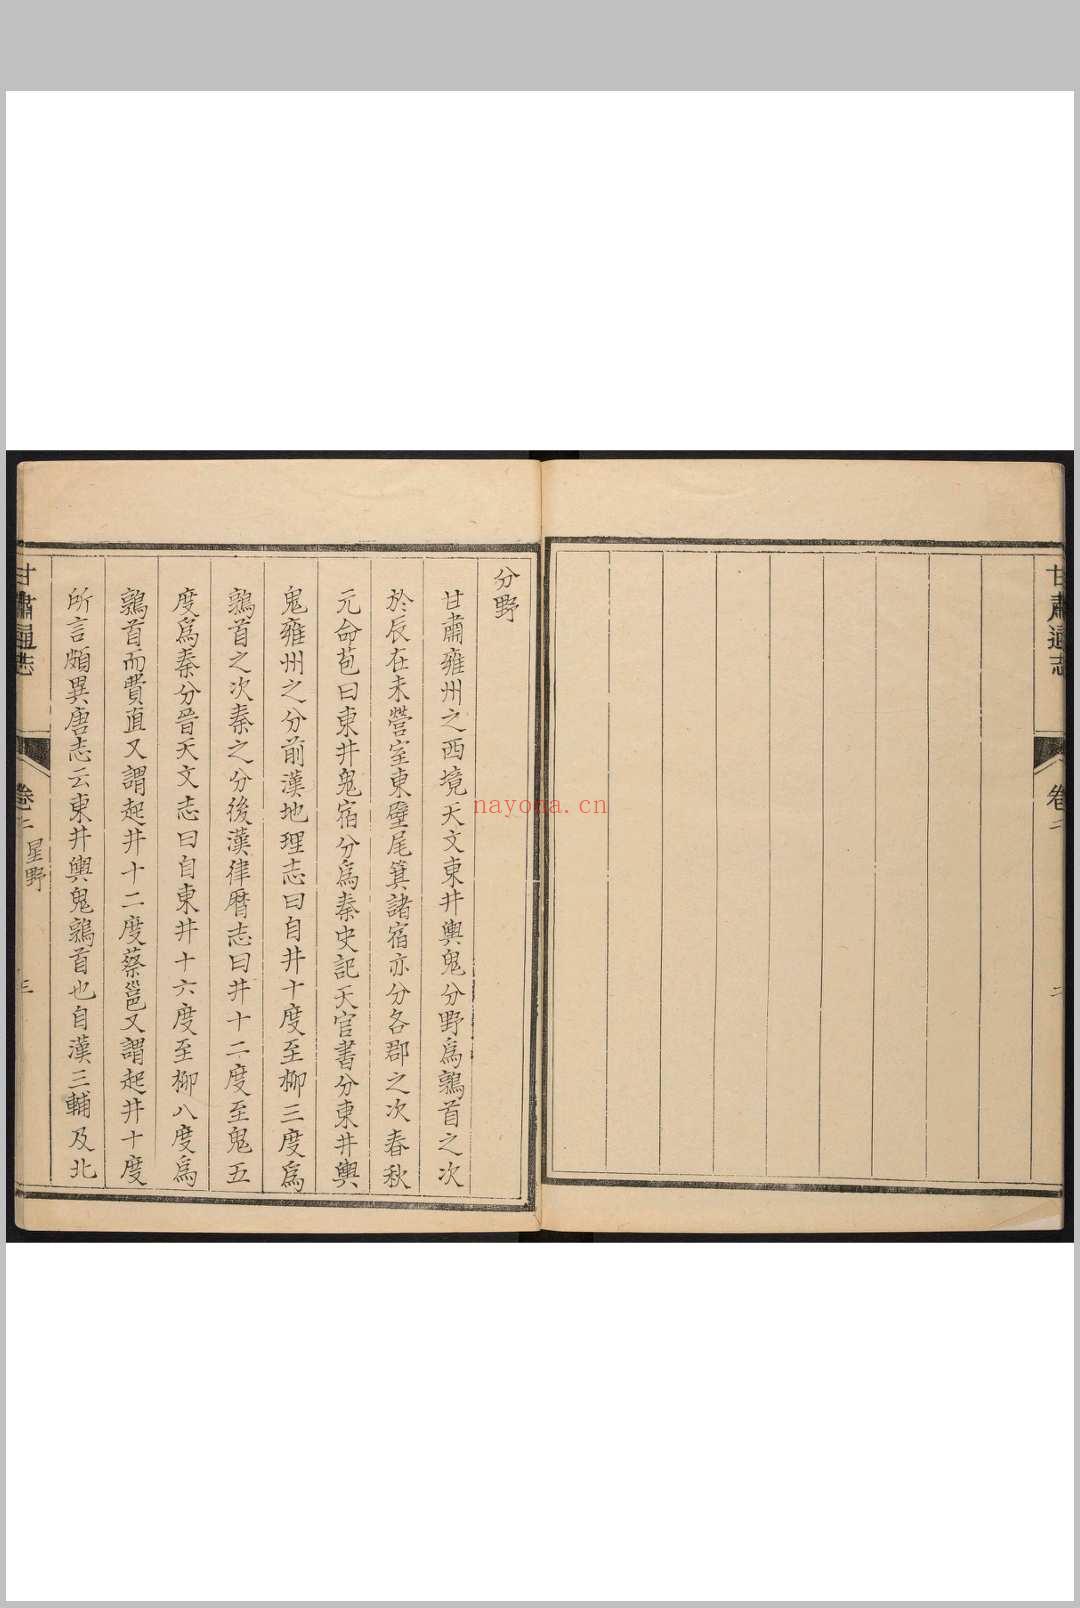 甘肅通志
卷二
二
分野
甘肅雍州之西境天文東井輿鬼分野爲鶉首之次
於辰在未營室東壁尾箕諸宿亦分各郡之次春秋
元命苞曰東井鬼宿分爲秦史記天官書分東井輿
鬼雍州之分前漢地理志曰自井十度至柳三度爲
鶉首之次秦之分後漢律曆志曰井十二度至鬼五
度爲秦分晉天文志曰自東井十六度至柳八度爲
鶉首而費直又謂起井十二度蔡邕又謂起井十度
所言頗異唐志云東井輿鬼鶉首也自漢三輔及北
甘肅通志
卷二
星野
三
nayona.cn